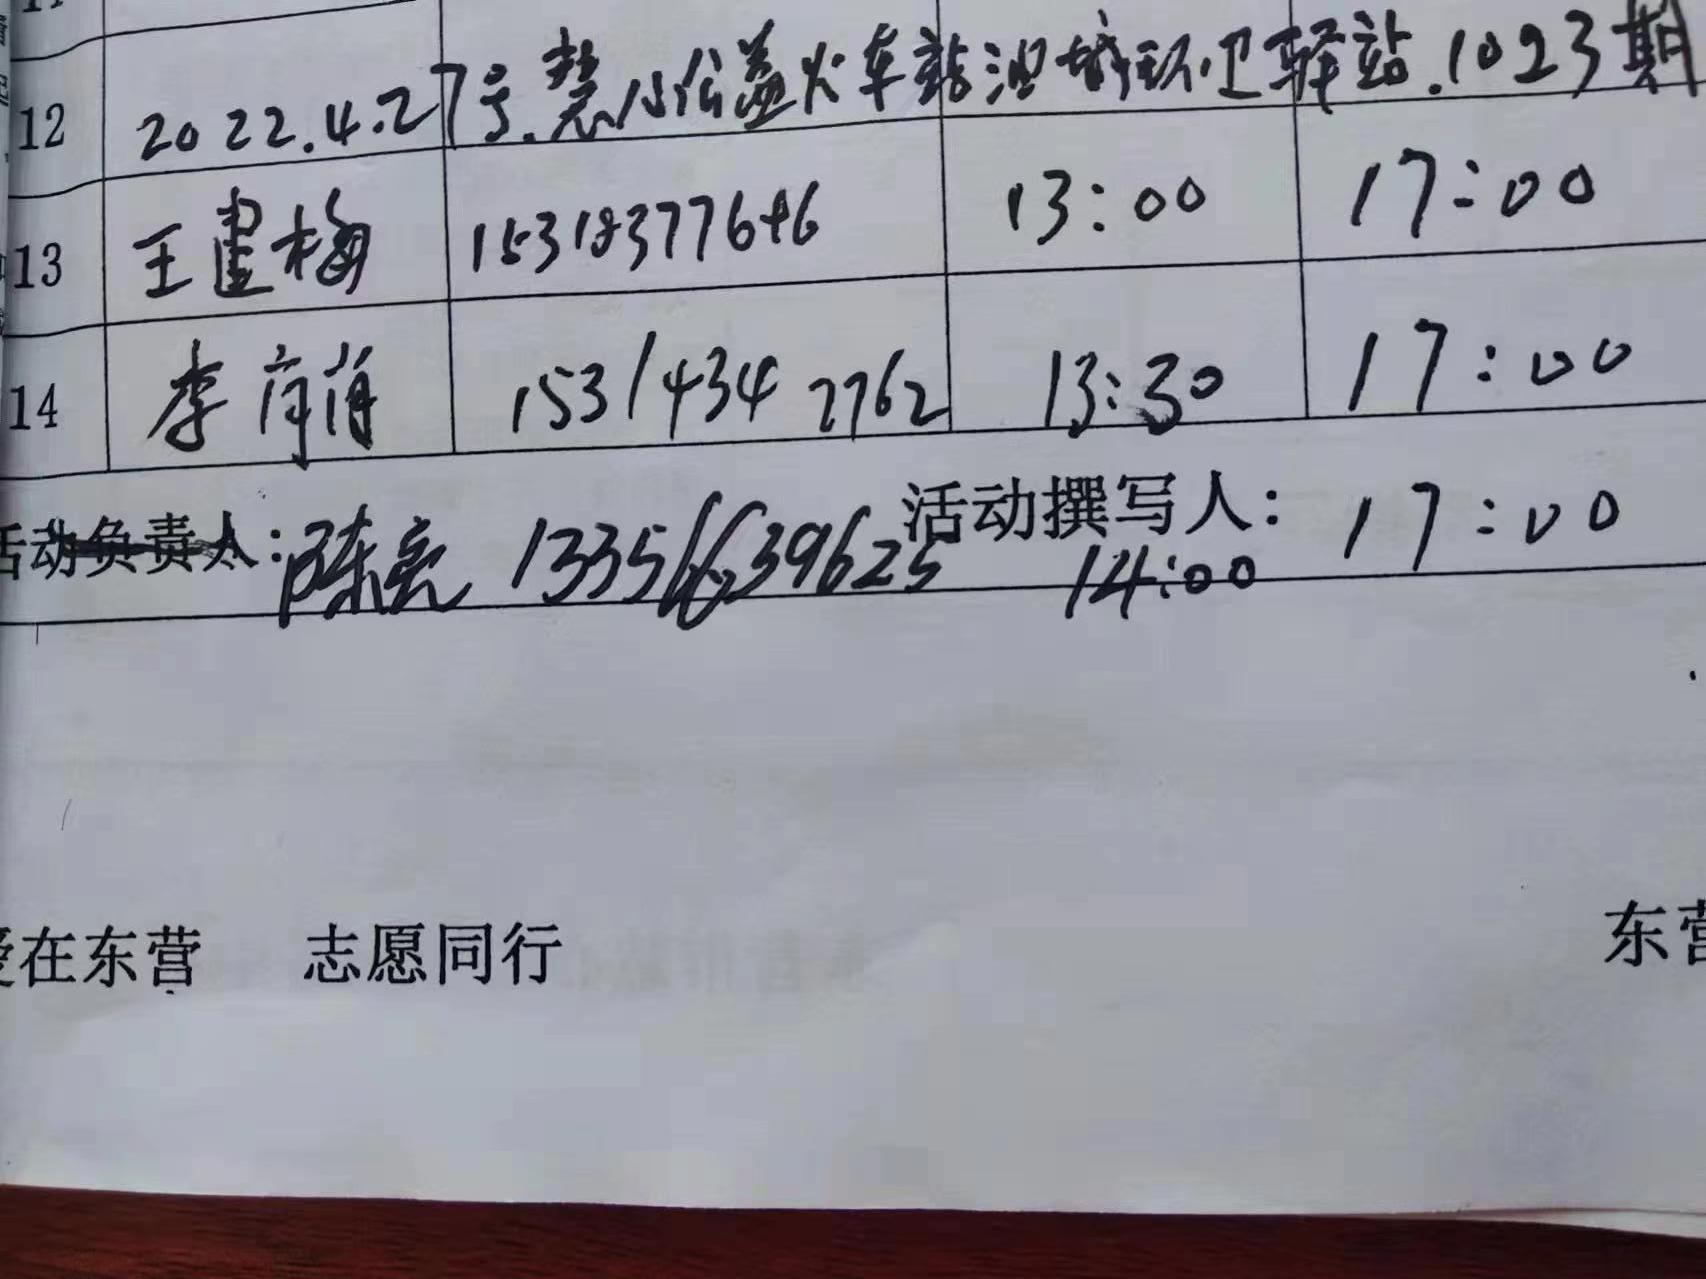 12 2022.4.27号.慧心公益火车站油城环卫驿站.1023期
13 王建梅 15318377646 13:00 17:00
14 李 15314342762 13:30 17:00
活动负责人: 陈亮 13356639625 活动撰写人: 14:00 17:00
爱在东营 志愿同行 东营